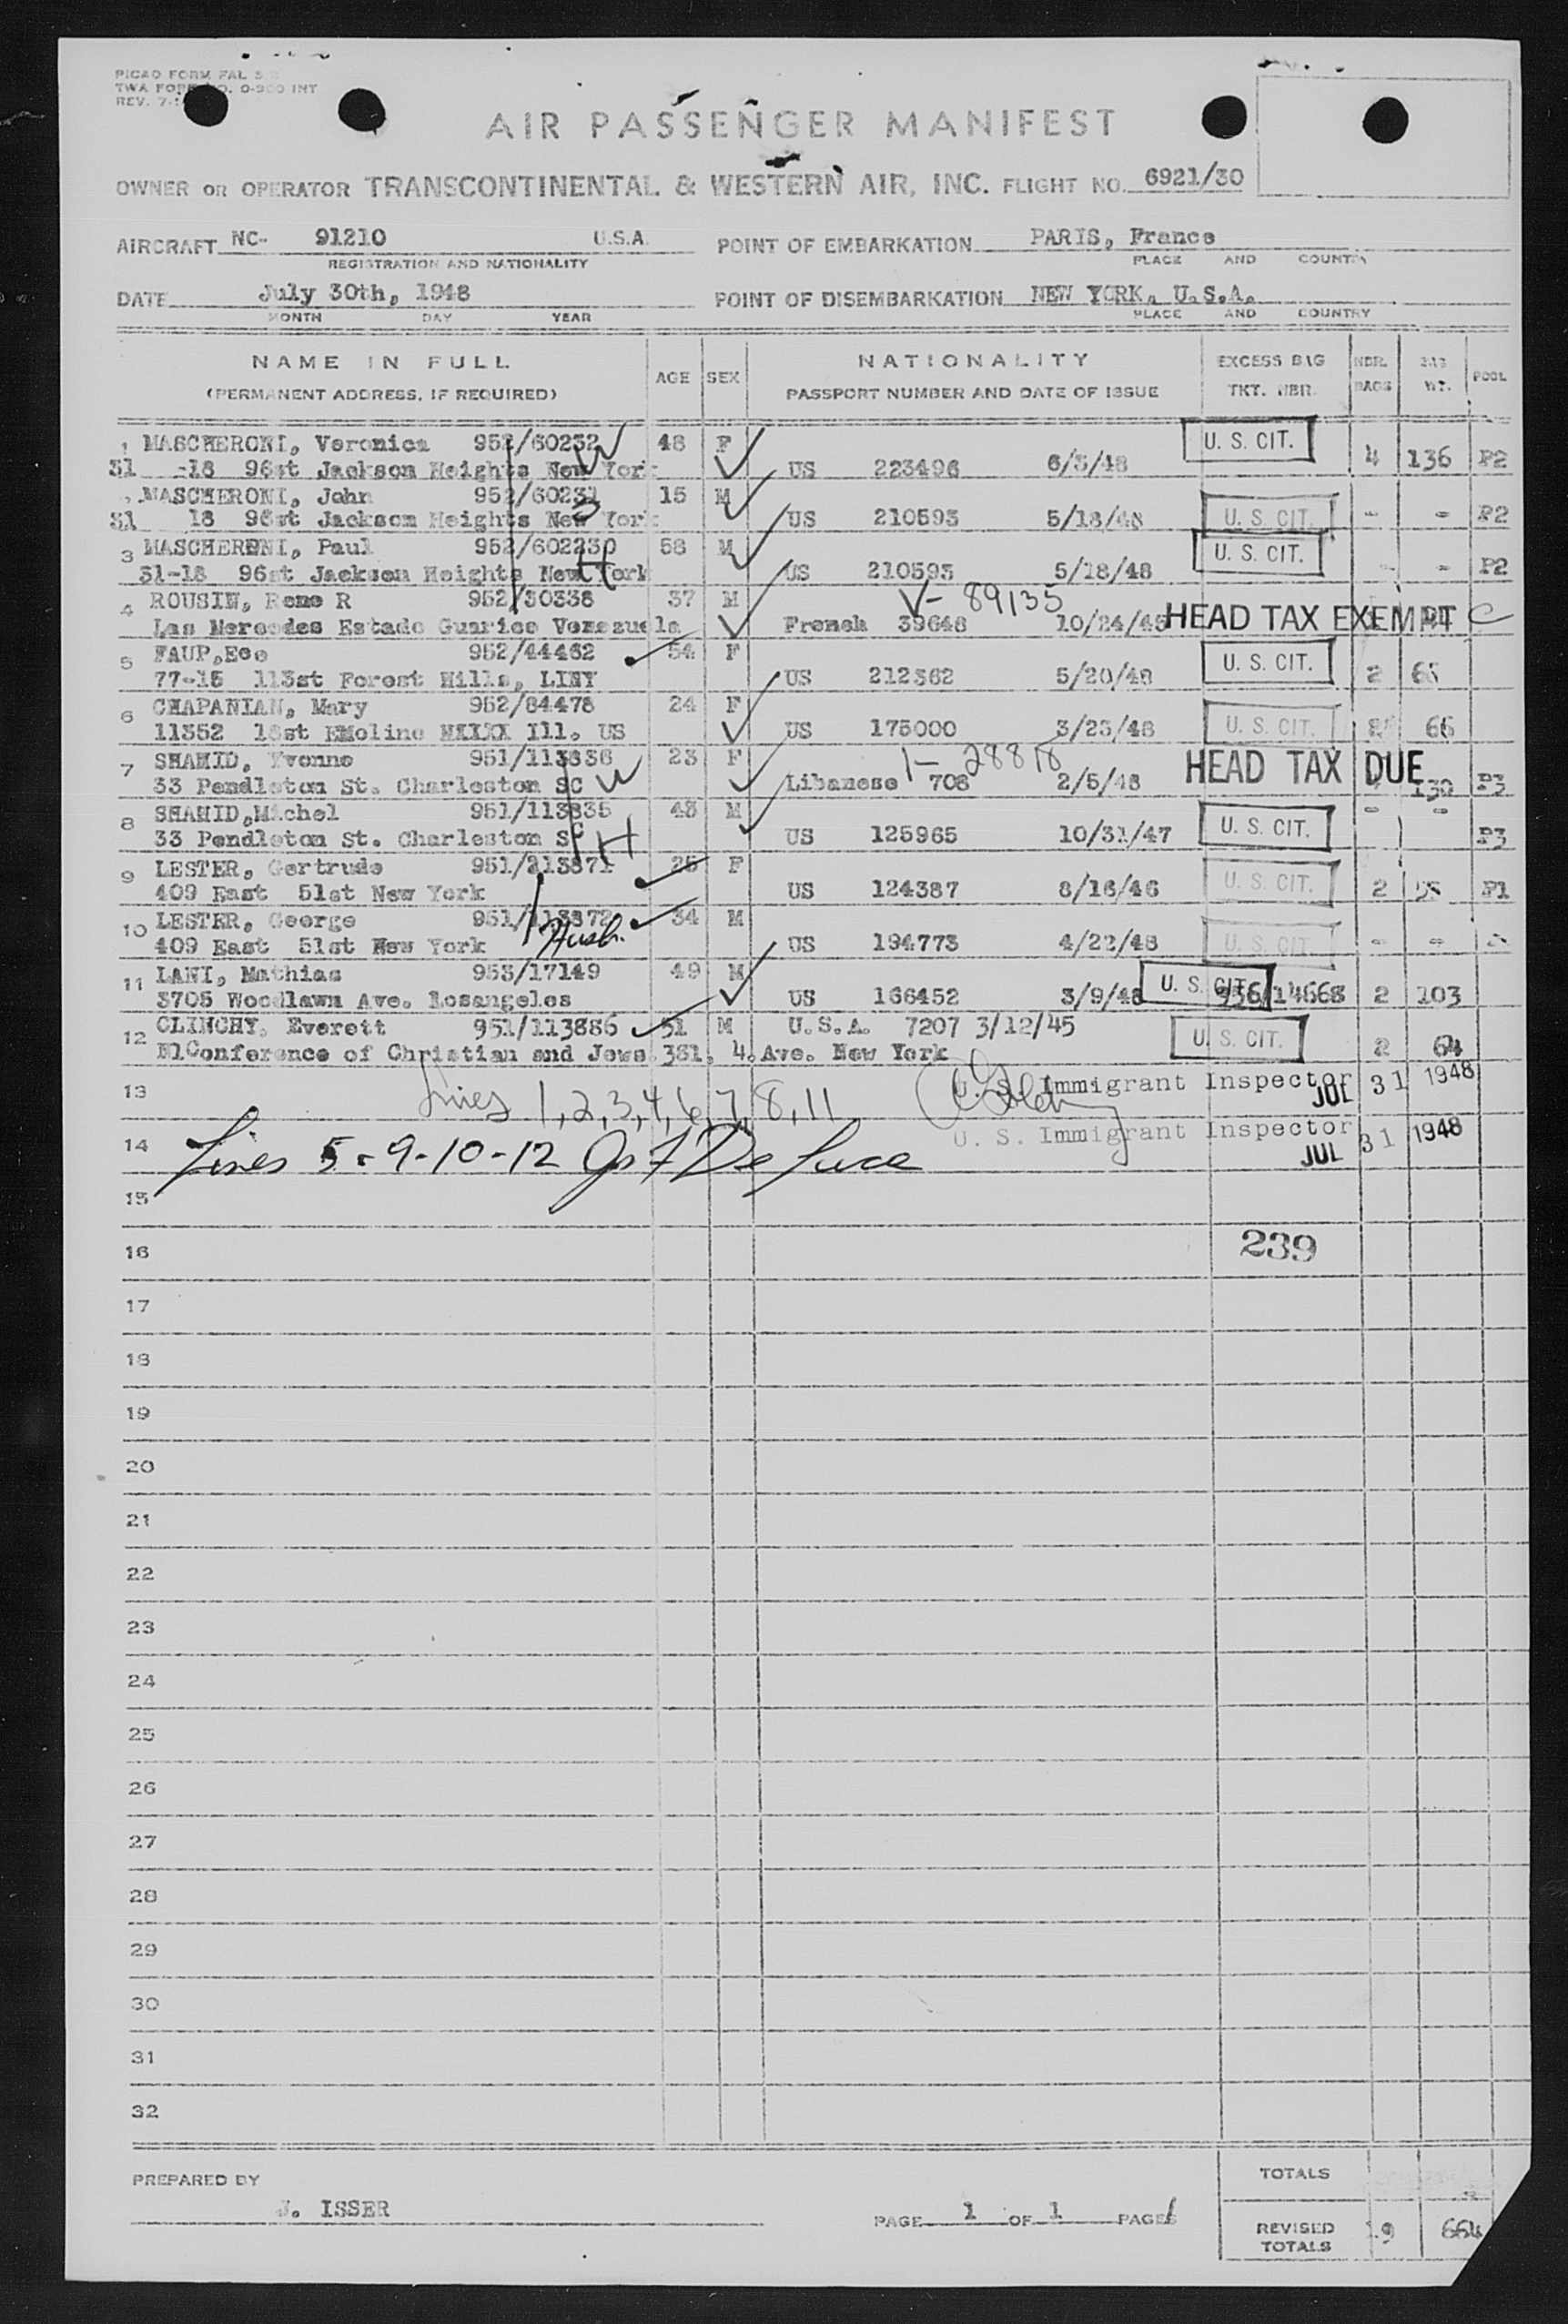 PICAO FORM FAL
TWA FORM NO. O-930 INT
REV. 7-
AIR PASSENGER MANIFEST
OWNER OR OPERATOR TRANSCONTINENTAL & WESTERN AIR, INC. FLIGHT NO. 6921/30
AIRCRAFT NC- 91210 U.S.A. POINT OF EMBARKATION PARIS, France
REGISTRATION AND NATIONALITY PLACE AND COUNTRY
DATE July 30th, 1948 POINT OF DISEMBARKATION NEW YORK, U.S.A.
MONTH DAY YEAR PLACE AND COUNTRY
NAME IN FULL AGE SEX NATIONALITY EXCESS BAG NBR. BAG POOL
(PERMANENT ADDRESS, IF REQUIRED) PASSPORT NUMBER AND DATE OF ISSUE TKT. NBR. BAGS WT.
1 MASCHERONI, Veronica 952/60232 W 48 F U. S. CIT.
31 -18 96st Jackson Heights New York US 223496 6/3/48 4 136 P2
MASCHERONI, John 952/60231 15 M
31 18 96st Jackson Heights New York US 210593 5/18/48 U. S. CIT. - - P2
3 MASCHERONI, Paul 952/602230 H 58 M U. S. CIT.
31-18 96st Jackson Heights New York US 210593 5/18/48 - - P2
4 ROUSIN, Rene R 952/30338 37 M V- 89135
Las Mercedes Estado Guarico Venezuela French 39648 10/24/48 HEAD TAX EXEMPT C
5 FAUP,Eee 952/44462 54 F U. S. CIT.
77-15 113st Forest Hills, LINY US 212362 5/20/48 2 65
6 CHAPANIAN, Mary 952/84478 24 F
11352 18st EMoline MXXXX Ill. US US 175000 3/23/48 U. S. CIT. 66
7 SHAMID, Yvonne 951/113836 W 23 F 1- 28818 HEAD TAX DUE
33 Pendleton St. Charleston SC Libanese 708 2/5/48 130 P3
8 SHAMID,Michel 951/113835 43 M U. S. CIT. - -
33 Pendleton St. Charleston SC H US 125965 10/31/47 P3
9 LESTER, Gertrude 951/113871 25 F U. S. CIT.
409 East 51st New York US 124387 8/16/46 2 P1
10 LESTER, George 951/113872 Husb. 34 M
409 East 51st New York US 194773 4/22/48 U. S. CIT. - -
11 LANI, Mathias 953/17149 49 M U. S. CIT.
3705 Woodlawn Ave. Losangeles US 166452 3/9/48 936/14668 2 103
12 CLINCHY, Everett 951/113886 51 M U.S.A. 7207 3/12/45 U. S. CIT.
NlConference of Christian and Jews 381, 4.Ave. New York 2 64
13 Lines 1,2,3,4,6,7,8,11 U. S. Immigrant Inspector JUL 31 1948
14 Lines 5-9-10-12 U. S. Immigrant Inspector JUL 31 1948
15
16 239
17
18
19
20
21
22
23
24
25
26
27
28
29
30
31
32
PREPARED BY TOTALS
J. ISSER PAGE 1 OF 1 PAGES
REVISED TOTALS 19 664